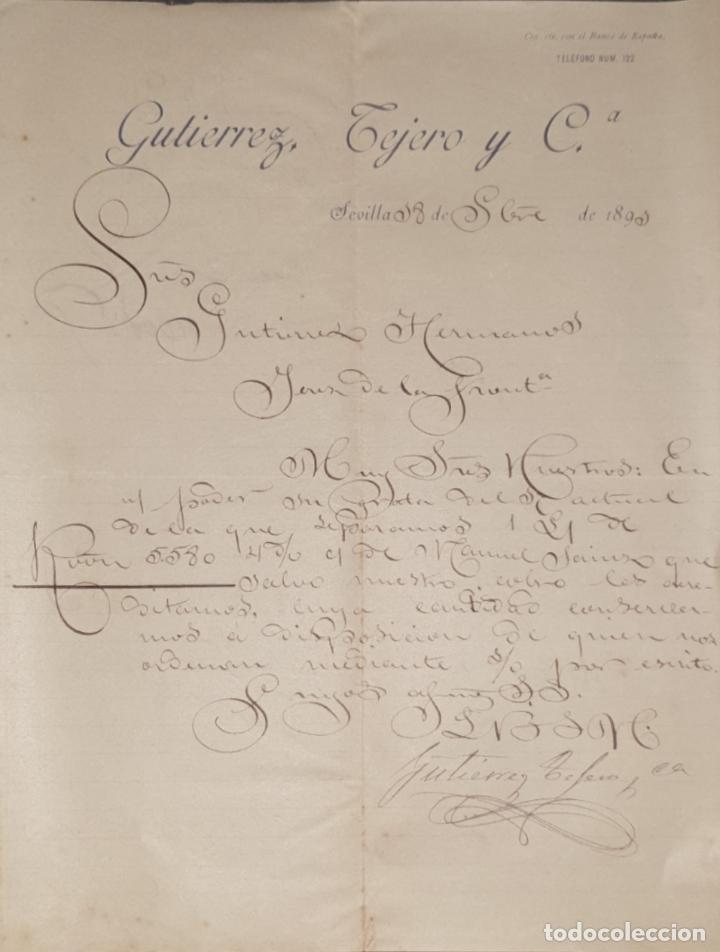 Cta. cte. con el Banco de España.
TELÉFONO NUM. 122
Gutierrez, Tejero y C.ª
Sevilla 18 de Sbre de 1893
Sres
Gutierrez Hermanos
Jerez de la Frontª
Muy Sres Nuestros: En
n/ poder su grata del actual
de la que separamos 1 L/ de
Rvon 5.580 4 d/v c/ de Manuel Sainz que
salvo nuestro cobro les acre-
ditamos, cuya cantidad conserva-
mos a disposicion de quien nos
ordenan mediante s/o por escrito.
Suyos afmos S.S.
Q B S M
Gutierrez Tejero y Cª
todocoleccion